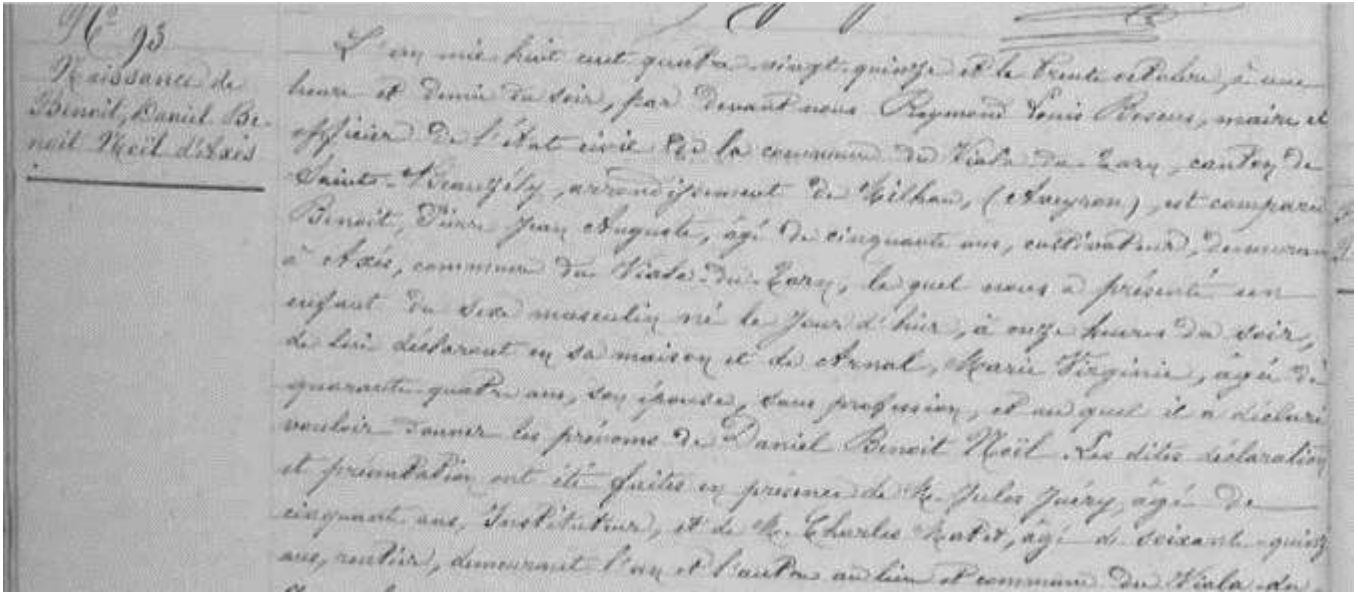 N° 93
Naissance de
Benoit, Daniel Be-
noit Noël d'Axis
L'an mil huit cent quatre-vingt-quinze et le trente octobre, à une
heure et demie du soir, par devant nous Raymond Louis, maire et
officier de l'état civil de la commune du Viala-du-Tarn, canton de
Sainte-Beauzély, arrondissement de Milhau, (Aveyron), est comparu
Benoit, Pierre Jean Auguste, âgé de cinquante ans, cultivateur, demeurant
à Axis, commune du Viala-du-Tarn, le quel nous a présenté un
enfant du sexe masculin né le jour d'hier, à onze heures du soir,
de lui déclarant en sa maison et de Arnal, Marie Virginie, âgée de
quarante quatre ans, son épouse, sans profession, et au quel il a déclaré
vouloir donner les prénoms de Daniel Benoit Noël. Les dites déclaration
et présentation ont été faites en présence de M. Jules Juéry, âgé de
cinquante ans, Instituteur, et de M. Charles Matet, âgé de soixante-quinze
ans, rentier, demeurant l'un et l'autre au lieu et commune du Viala-du-